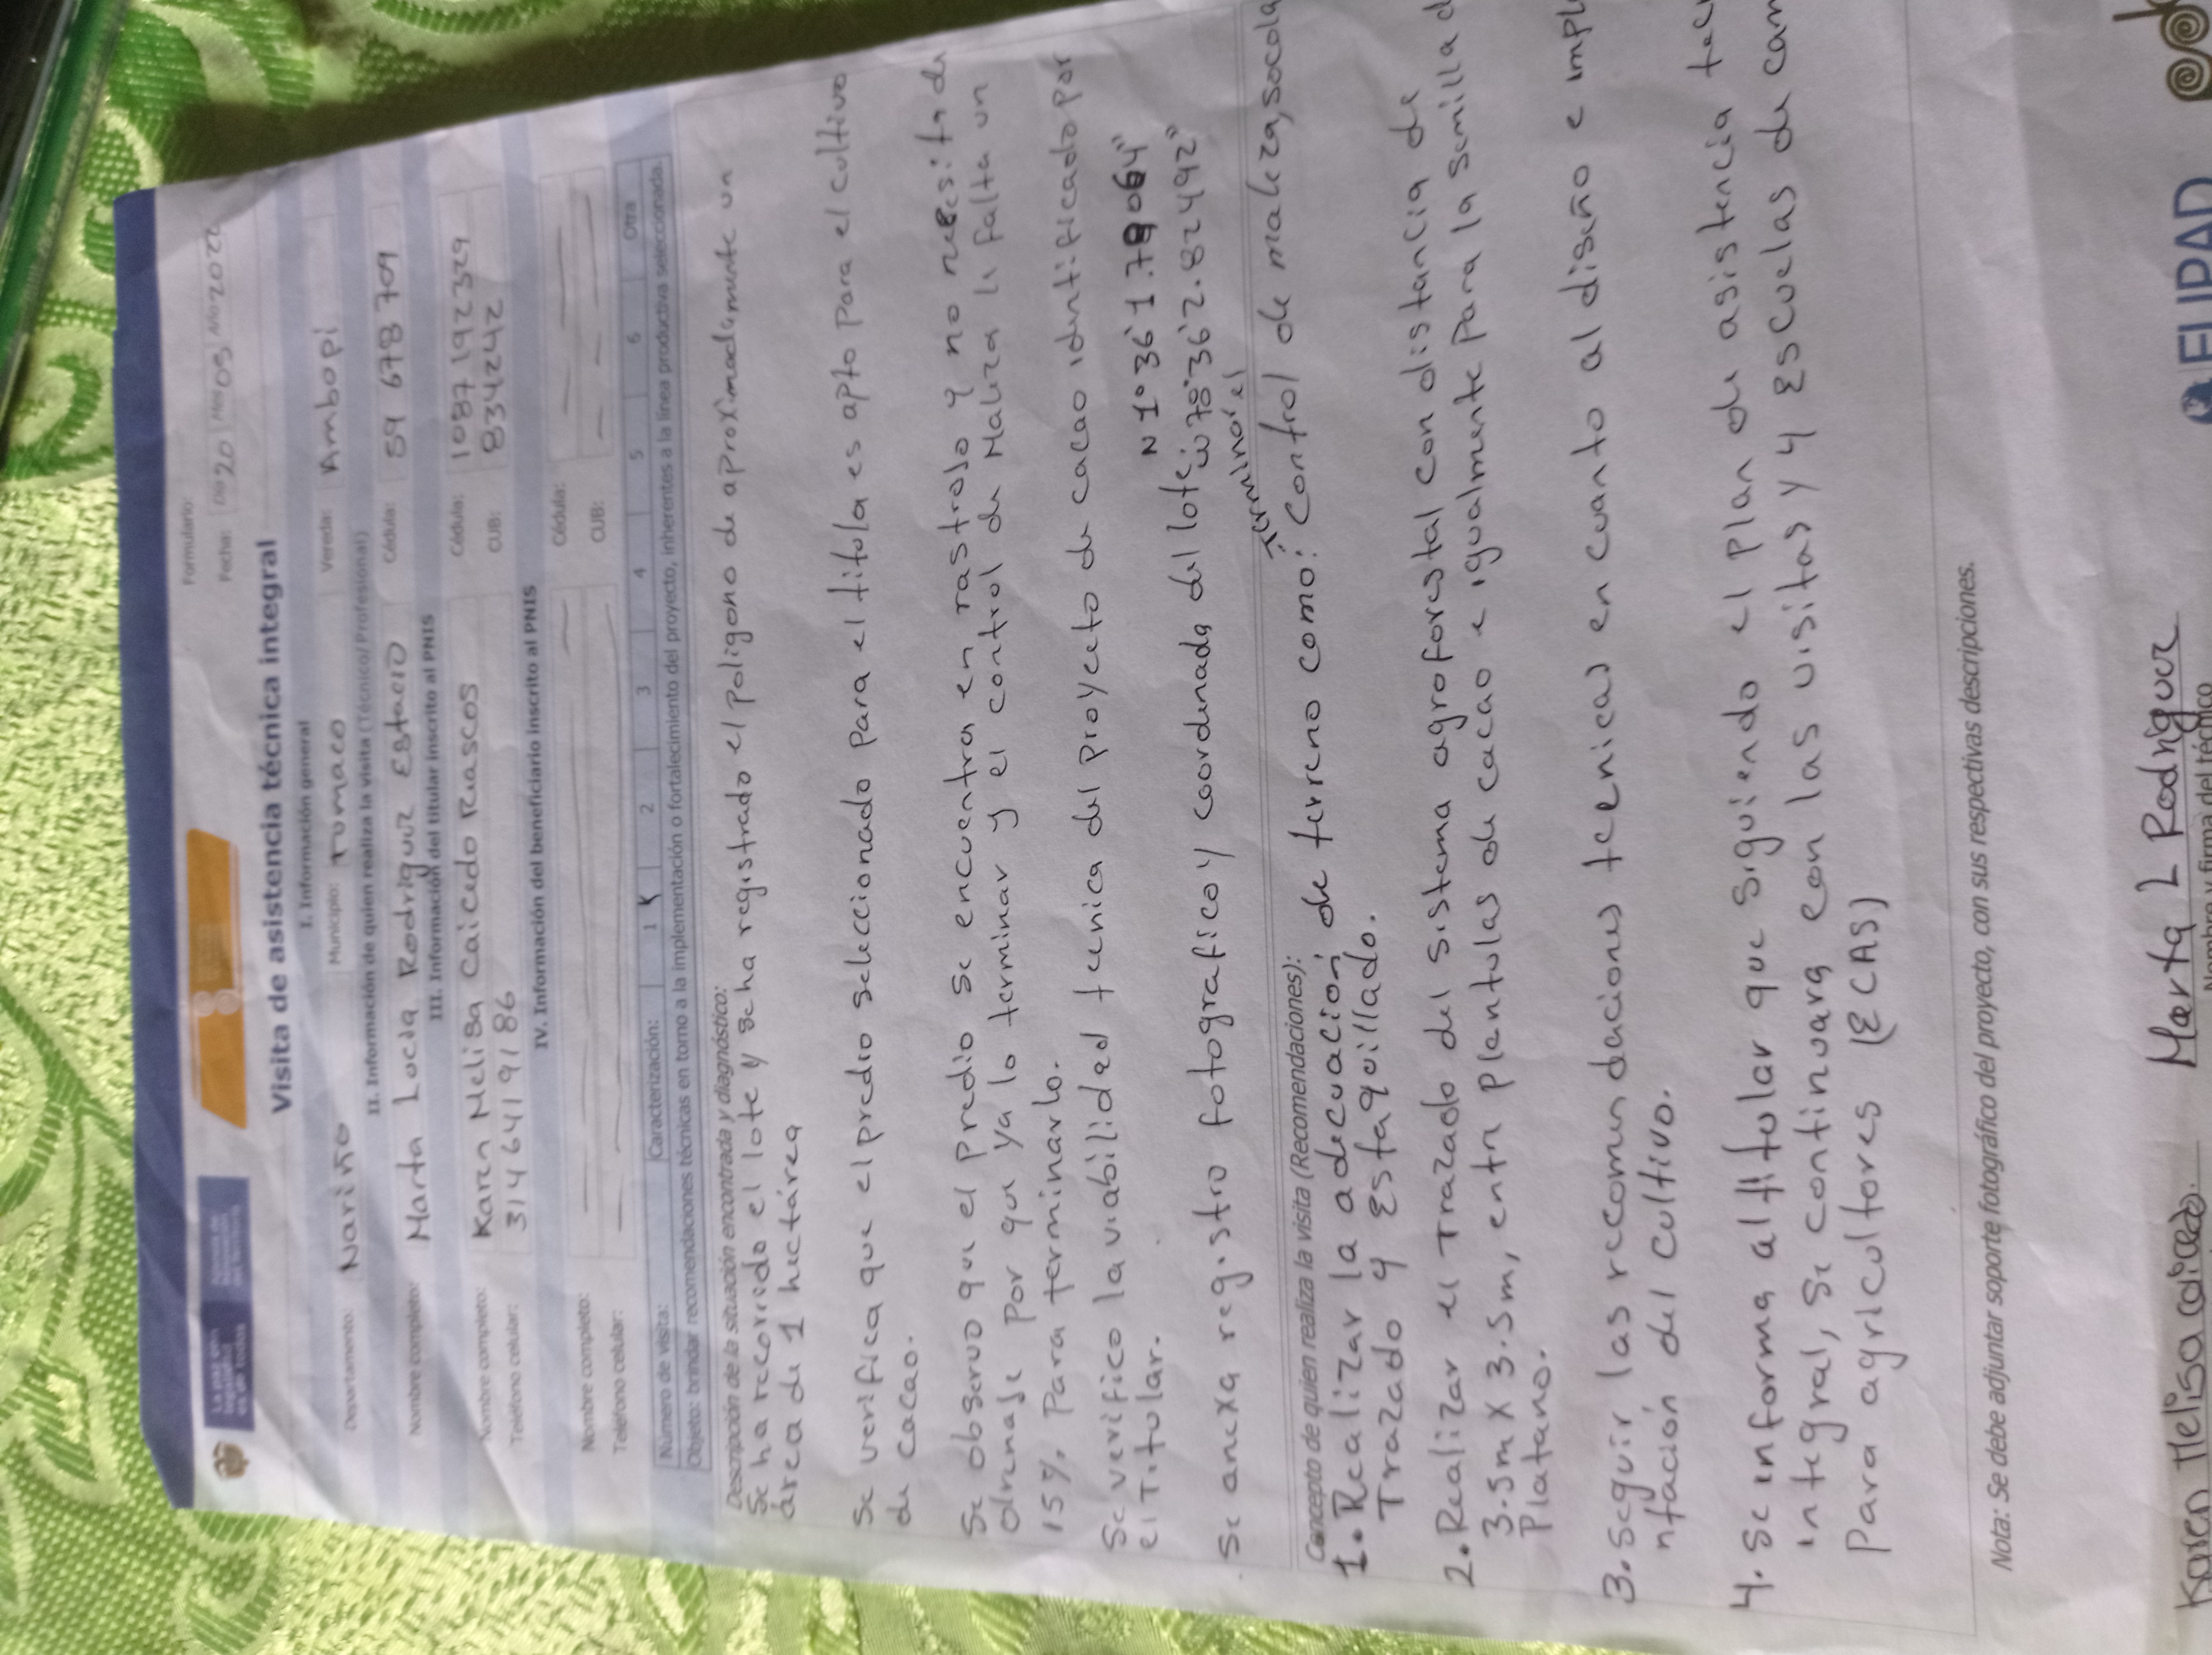 La paz con legalidad es de todos
Formulario:
Fecha: Día 20 Mes 05 Año 2022
Visita de asistencia técnica integral
I. Información general
Departamento: Nariño Municipio: Tumaco Vereda: Ambopi
II. Información de quien realiza la visita (Técnico/Profesional)
Nombre completo: Marta Lucia Rodriguez Estacio Cédula: 59 678 709
III. Información del titular inscrito al PNIS
Nombre completo: Karen Melisa Caicedo Ruascos Cédula: 1087192329
Teléfono celular: 3146419186 CUB: 834242
IV. Información del beneficiario inscrito al PNIS
Nombre completo: Cédula:
Teléfono celular: CUB:
Número de visita: Caracterización: 1 X 2 3 4 5 6 Otra
Objeto: brindar recomendaciones técnicas en torno a la implementación o fortalecimiento del proyecto, inherentes a la línea productiva seleccionada.
Descripción de la situación encontrada y diagnóstico:
Se ha recorrido el lote y se ha registrado el poligono de aproximadamente un
área de 1 hectárea
Se verifica que el predio seleccionado para el titula es apto para el cultivo
de cacao.
Se observo que el predio se encuentra en rastrolo y no necesita de
drenaje por que ya lo terminar y el control de Maleza le falta un
15% para terminarlo.
Se verifico la viabilidad tecnica del proyecto de cacao identificado por
el Titular.
N 1° 36' 1.79064"
Se anexa registro fotografico y coordenada del lote: W 78° 36' 2.82492"
Concepto de quien realiza la visita (Recomendaciones): Terminó el
1. Realizar la adecuación de terreno como: Control de maleza, socola
Trazado y Estaquillado.
2. Realizar el Trazado del sistema agroforestal con distancia de
3.5m x 3.5m, entre plantulas de cacao e igualmente para la semilla d
Platano.
3. seguir las recomendaciones tecnicas en cuanto al diseño e imple
ntación del cultivo.
4. Se informa al titular que siguiendo el plan de asistencia tec
integral, se continuara con las visitas y 4 Escuelas de cam
Para agricultores (ECAS)
Nota: Se debe adjuntar soporte fotográfico del proyecto, con sus respectivas descripciones.
Karen Melisa caicedo. Marta L Rodriguez
Nombre y firma del técnico
ELIPAD